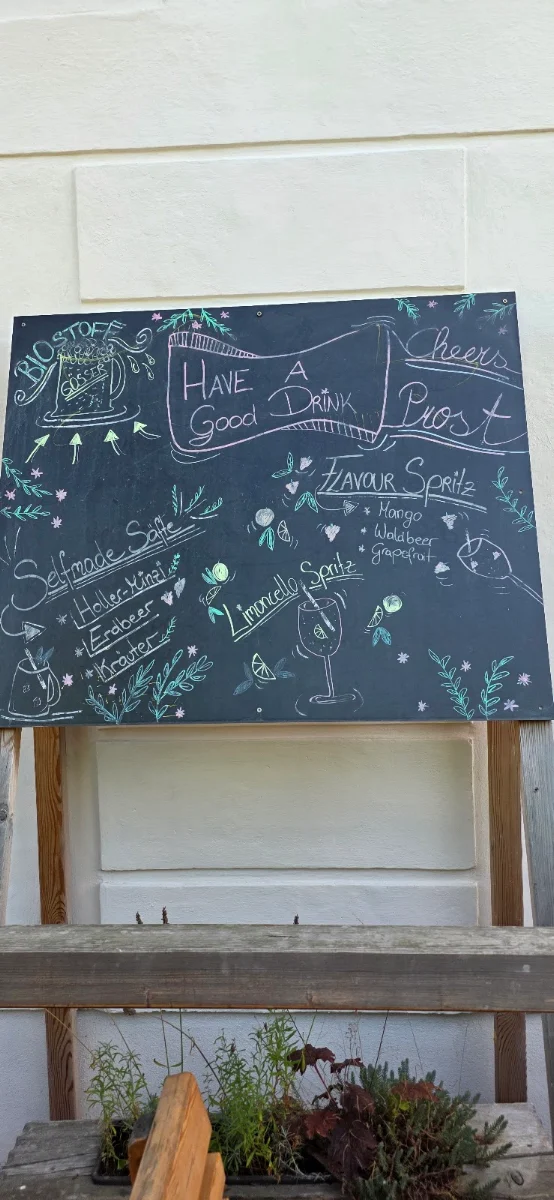 BIOSTOFF
GÖSSER
HAVE A
Good DRINK
Cheers
Prost
FLAVOUR Spritz
* Mango
* Waldbeer
* Grapefruit
Selfmade Säfte
* Holler-Minze
* Erdbeer
* Kräuter
Limoncello Spritz